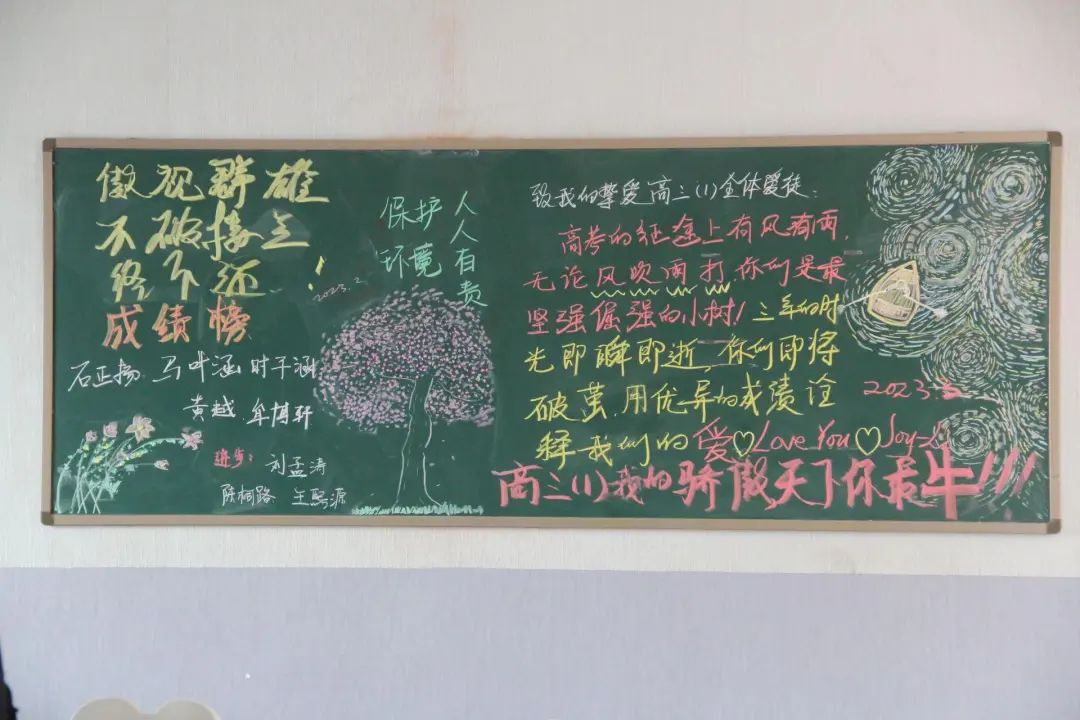 傲视群雄
不破楼兰
终不还!
成绩榜
石正扬 马叶涵 时子涵
黄越 牟博轩
进步: 刘孟涛
陈桐路 王熙源
保护环境
人人有责
2023.2
致我的挚爱高三(1)全体爱徒:
高考的征途上有风有雨,
无论风吹雨打你们是最
坚强倔强的小树!三年的时
光即瞬即逝,你们即将
破茧,用优异的成绩诠
释我们的爱♡Love You♡Joy
2023.2
高三(1)我的骄傲天下你最牛!!!